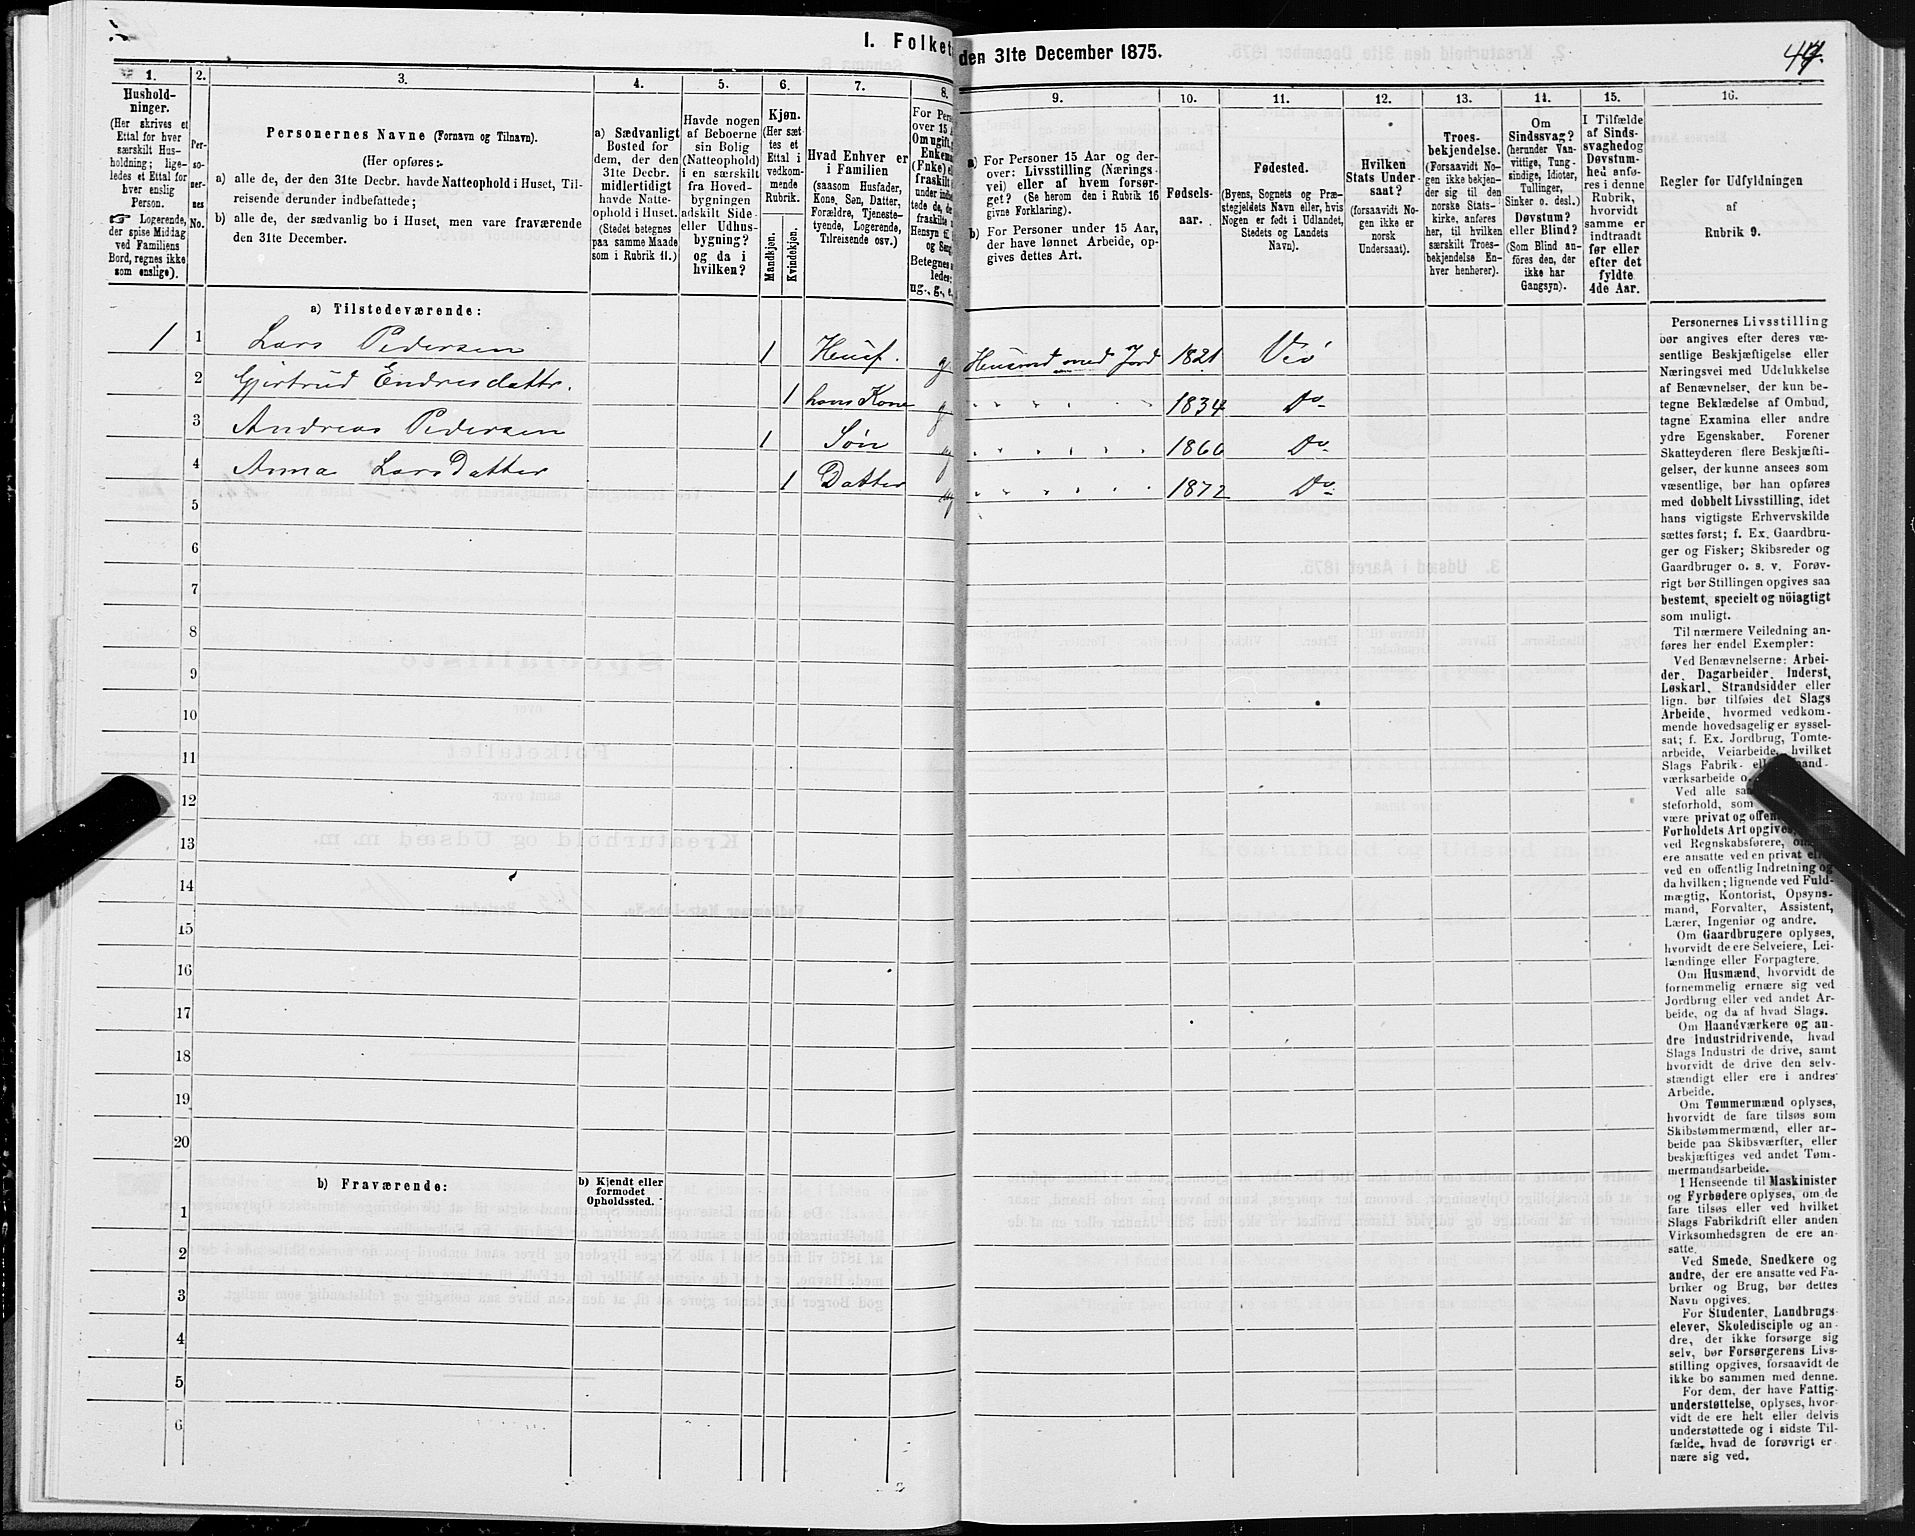 1. Folket den 31te December 1875.
1.
Hushold-
ninger.
(Her skrives et
Ettal for hver
særskilt Hus-
holdning; lige-
ledes et Ettal for
hver enslig
Person.
Logerende,
der spise Middag
ved Familiens
Bord, regnes ikke
som enslige).
2.
Per-
so-
ner-
nes
No.
3.
Personernes Navne (Fornavn og Tilnavn).
(Her opføres:
a) alle de, der den 31te Decbr. havde Natteophold i Huset, Til-
reisende derunder indbefattede;
b) alle de, der sædvanlig bo i Huset, men vare fraværende
den 31te December.
4.
a) Sædvanligt
Bosted for
dem, der den
31te Decbr.
midlertidigt
havde Natte-
ophold i Huset.
(Stedet betegnes
paa samme Maade
som i Rubrik 11.)
5.
Havde nogen
af Beboerne
sin Bolig
(Natteophold)
i en særskilt
fra Hoved-
bygningen
adskilt Side-
eller Udhus-
bygning?
og da i
hvilken?
6.
Kjøn.
(Her sæt-
tes et
Ettal i
vedkom-
mende
Rubrik.
Mandkjøn.
Kvindekjøn.
7.
Hvad Enhver er
i Familien
(saasom Husfader,
Kone, Søn, Datter,
Forældre, Tjeneste-
tyende, Logerende,
Tilreisende osv.)
8.
For Pers
over 15 A
Om ugift,
Enkema
(Fnke) el
fraskilt
under indbe
tede de, de
fraskilte
Hensyn til
og Seng
Betegnes
ledes:
ug., g., e.
9.
a) For Personer 15 Aar og der-
over: Livsstilling (Nærings-
vei) eller af hvem forsør-
get? (Se herom den i Rubrik 16
givne Forklaring).
b) For Personer under 15 Aar,
der have lønnet Arbeide, op-
gives dettes Art.
10.
Fødsels-
aar.
11.
Fødested.
(Byens, Sognets og Præ-
stegjeldets Navn eller, hvis
Nogen er født i Udlandet,
Stedets og Landets
Navn).
12.
Hvilken
Stats Under-
saat?
(forsaavidt No-
gen ikke er
norsk
Undersaat).
13.
Troes-
bekjendelse.
(Forsaavidt No-
gen ikke bekjen-
der sig til den
norske Stats-
kirke, anføres
her, til hvilken
særskilt Troes-
bekjendelse En-
hver henhører).
14.
Om
Sindssvag?
(herunder Van-
vittige, Tung-
sindige, Idioter,
Tullinger,
Sinker o. desl.)
Døvstum?
eller Blind?
(Som Blind an-
föres den, der
ikke har
Gangsyn).
15.
I Tilfælde
af Sinds-
svaghed og
Døvstum-
hed anfø-
res i denne
Rubrik,
hvorvidt
samme er
indtraadt
før eller
efter det
fyldte
4de Aar.
16.
Regler for Udfyldningen
af
Rubrik 9.
a) Tilstedeværende:
1 1 Lars Pedersen 1 Husf. g Husmd med Jord 1821 Veö
2 Gjertrud Endresdattr. 1 hans Kone g " " " " " 1834 Do
3 Andreas Pedersen 1 Søn ug " " " " " 1866 Do
4 Anna Larsdatter 1 Datter ug " " " " " 1872 Do
5
6
7
8
9
10
11
12
13
14
15
16
17
18
19
20
b) Fraværende:
b) Kjendt eller
formodet
Opholdssted.
1
2
3
4
5
6
Personernes Livsstilling
bør angives efter deres væ-
sentlige Beskjæftigelse eller
Næringsvei med Udelukkelse
af Benævnelser, der kun be-
tegne Beklædelse af Ombud,
tagne Examina eller andre
ydre Egenskaber. Forener
Skatteyderen flere Beskjæfti-
gelser, der kunne ansees som
væsentlige, bør han opføres
med dobbelt Livsstilling, idet
hans vigtigste Erhvervskilde
sættes først; f. Ex. Gaardbru-
ger og Fisker; Skibsreder og
Gaardbruger o. s. v. Forøv-
rigt bør Stillingen opgives saa
bestemt, specielt og nöiagtigt
som muligt.
Til nærmere Veiledning an-
føres her endel Exempler:
Ved Benævnelserne: Arbei-
der, Dagarbeider, Inderst,
Løskarl, Strandsidder eller
lign. bør tilføies det Slags
Arbeide, hvormed vedkom-
mende hovedsagelig er syssel-
sat; f. Ex. Jordbrug, Tomte-
arbeide, Veiarbeide, hvilket
Slags Fabrik- el aand-
værksarbeide o.
Ved alle sa
steforhold, som
være privat og offen
Forholdets Art opgives,
ved Regnskabsførere, om
ere ansatte ved en privat el
ved en offentlig Indretning og
da hvilken; lignende ved Fuld-
mægtig, Kontorist, Opsyns-
mand, Forvalter, Assistent,
Lærer, Ingeniør og andre.
Om Gaardbrugere oplyses,
hvorvidt de ere Selveiere, Lei-
lændinge eller Forpagtere.
Om Husmænd, hvorvidt de
fornemmelig ernære sig ved
Jordbrug eller ved andet Ar-
beide, og da af hvad Slags.
Om Haandværkere og an-
dre Industridrivende, hvad
Slags Industri de drive, samt
hvorvidt de drive den selv-
stændigt eller ere i andres
Arbeide.
Om Tømmermænd oplyses,
hvorvidt de fare tilsøs som
Skibstømmermænd, eller ar-
beide paa Skibsværfter, eller
beskjæftiges ved andet Tøm-
mermandsarbeide.
I Henseende til Maskinister
og Fyrbødere oplyses, om de
fare tilsøs eller ved hvilket
Slags Fabrikdrift eller anden
Virksomhedsgren de ere an-
satte.
Ved Smede, Snedkere og
andre, der ere ansatte ved Fa-
briker og Brug, bør dettes
Navn opgives.
For Studenter, Landbrugs-
elever, Skoledisciple og an-
dre, der ikke forsørge sig
selv, bør Forsørgerens Livs-
stilling opgives, forsaavidt de
ikke bo sammen med denne.
For dem, der have Fattig-
understøttelse, oplyses, hvor-
vidt de ere helt eller delvis
understøttede og i sidste Til-
fælde, hvad de forøvrigt er-
nære sig ved.